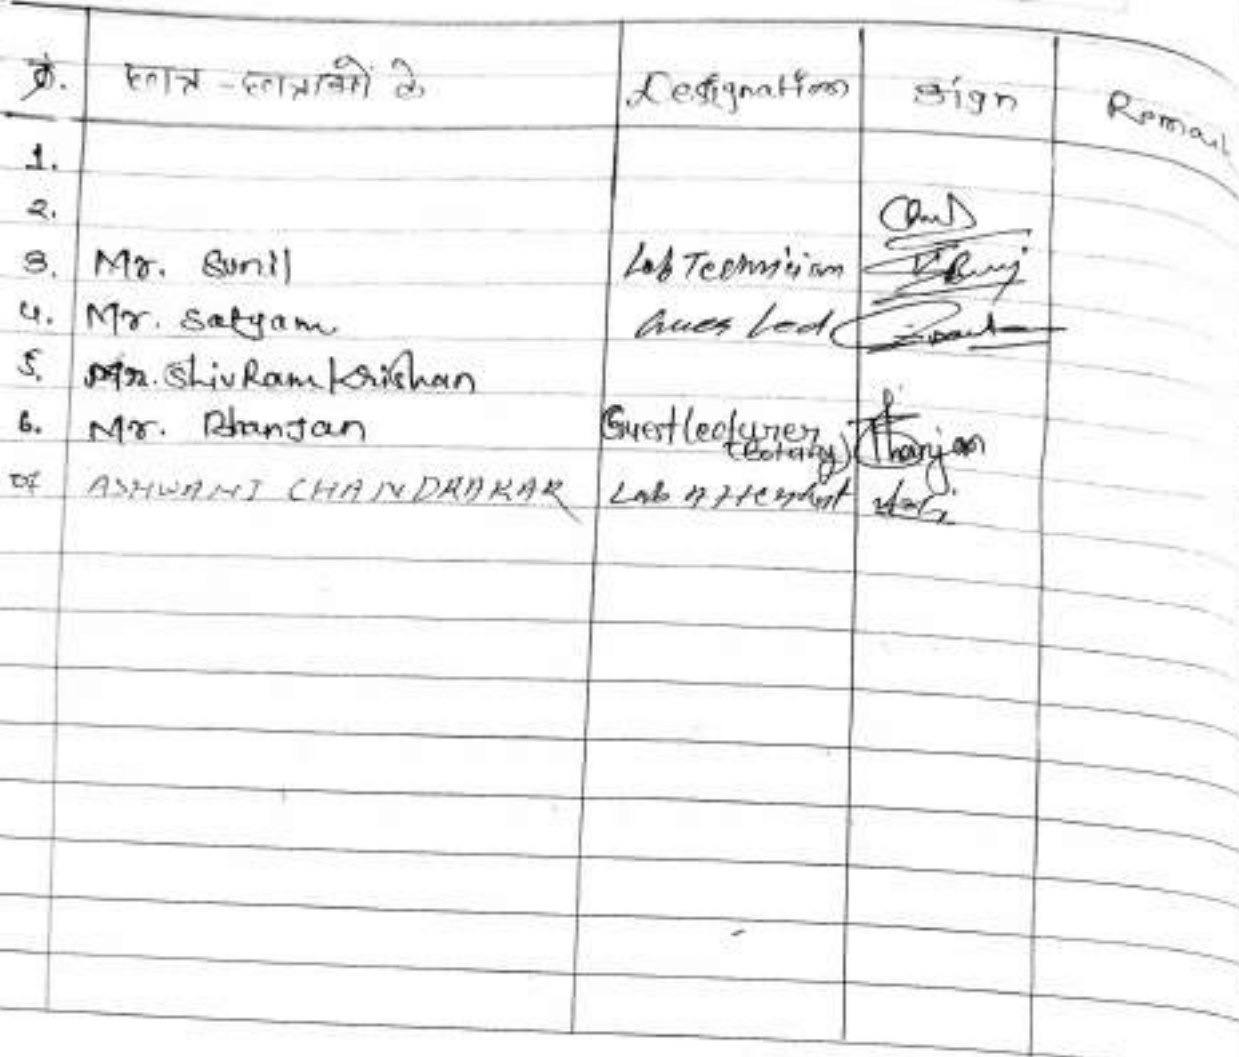 क्रं. छात्र-छात्राओं के Designation Sign Remark
1.
2.
3. Mr. Sunil Lab Technician
4. Mr. Satyam Gues Lect
5. Mr. ShivRam Krishan
6. Mr. Bhanjan Guest lecturer
(Botany) Bhanjan
07 ASHWANI CHANDRAKAR Lab Attendnt